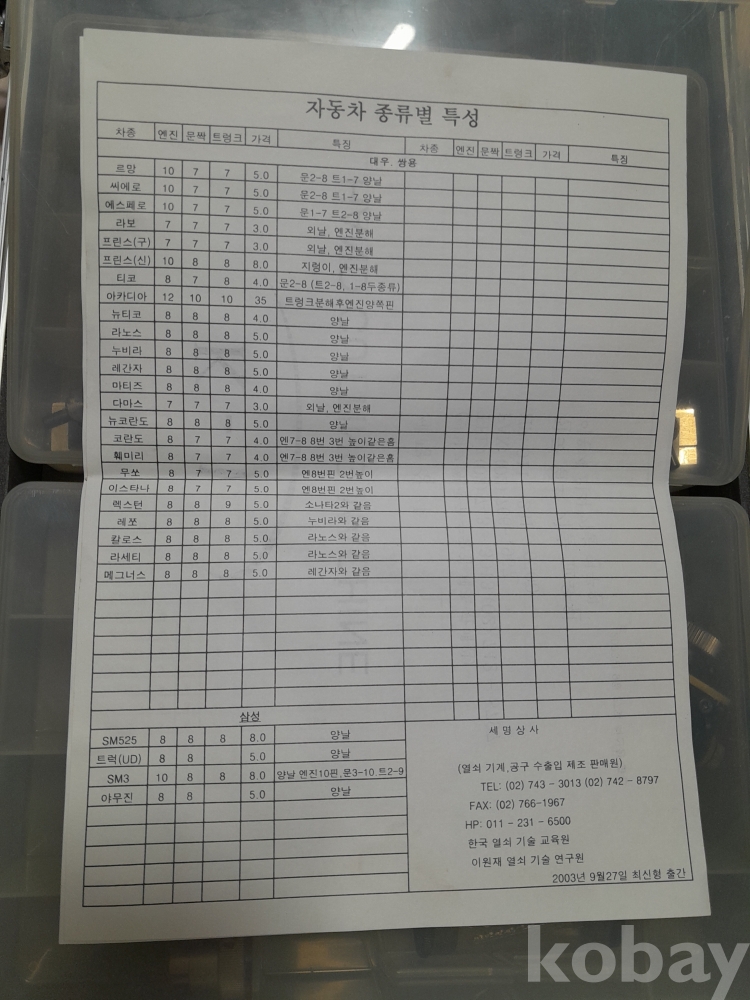 자동차 종류별 특성
차종 엔진 문짝 트렁크 가격 특징 차종 엔진 문짝 트렁크 가격 특징
대우. 쌍용
르망 10 7 7 5.0 문2-8 트1-7 양날
씨에로 10 7 7 5.0 문2-8 트1-7 양날
에스페로 10 7 7 5.0 문1-7 트2-8 양날
라보 7 7 7 3.0 외날, 엔진분해
프린스(구) 7 7 7 3.0 외날, 엔진분해
프린스(신) 10 8 8 8.0 지렁이, 엔진분해
티코 8 7 8 4.0 문2-8 (트2-8, 1-8두종류)
아카디아 12 10 10 35 트렁크분해후엔진양쪽핀
뉴티코 8 8 8 4.0 양날
라노스 8 8 8 5.0 양날
누비라 8 8 8 5.0 양날
레간자 8 8 8 5.0 양날
마티즈 8 8 8 4.0 양날
다마스 7 7 7 3.0 외날, 엔진분해
뉴코란도 8 8 8 5.0 양날
코란도 8 7 7 4.0 엔7-8 8번 3번 높이같은홈
훼미리 8 7 7 4.0 엔7-8 8번 3번 높이같은홈
무쏘 8 7 7 5.0 엔8번핀 2번높이
이스타나 8 7 7 5.0 엔8번핀 2번높이
렉스턴 8 8 9 5.0 소나타2와 같음
레쪼 8 8 8 5.0 누비라와 같음
칼로스 8 8 8 5.0 라노스와 같음
라세티 8 8 8 5.0 라노스와 같음
메그너스 8 8 8 5.0 레간자와 같음
삼성
SM525 8 8 8 8.0 양날
트럭(UD) 8 8 5.0 양날
SM3 10 8 8 8.0 양날 엔진10핀,문3-10 트2-9
야무진 8 8 5.0 양날
세명상사
(열쇠 기계,공구 수출입 제조 판매원)
TEL: (02) 743 - 3013 (02) 742 - 8797
FAX: (02) 766-1967
HP: 011 - 231 - 6500
한국 열쇠 기술 교육원
이원재 열쇠 기술 연구원
2003년 9월27일 최신형 출간
kobay